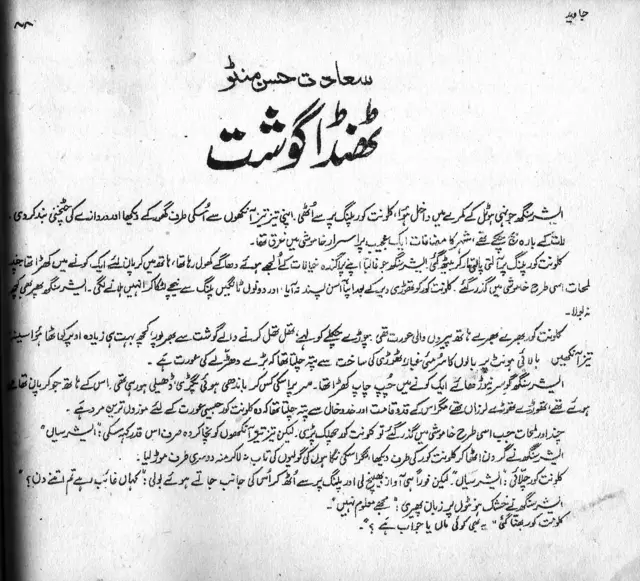 جاوید
سعادت حسن منٹو
ٹھنڈا گوشت
ایشر سنگھ جونہی ہوٹل کے کمرے میں داخل ہوا، کلونت کور پلنگ پر سے اُٹھی، اپنی تیز تیز آنکھوں سے اُسکی طرف گھور کے دیکھا اور دروازے کی چٹخنی بند کردی۔
رات کے بارہ بج چکے تھے، شہر کا مضافات ایک عجیب پراسرار خاموشی میں غرق تھا۔
کلونت کور پلنگ پر آلتی پالتی مار کر بیٹھ گئی، ایشر سنگھ جو غالباً اپنے پراگندہ خیالات کے اُلجھے ہوئے دھاگے کھول رہا تھا، ہاتھ میں کرپان لئے ایک کونے میں کھڑا تھا، چند
لمحات اسی طرح خاموشی میں گذر گئے، کلونت کور کو تھوڑی دیر کے بعد اپنا آسن پسند نہ آیا، اور دونوں ٹانگیں پلنگ سے نیچے لٹکا کر انہیں ہلانے لگی۔ ایشر سنگھ پھر بھی کچھ
نہ بولا۔
کلونت کور بھرے بھرے ہاتھ پیروں والی عورت تھی، چوڑے چکلے کولہے، تھل تھل کرنے والے گوشت سے بھرپور، کچھ بہت ہی زیادہ اوپر کو اٹھا ہوا سینہ
تیز آنکھیں بالائی ہونٹ پر بالوں کا سُرمئی غبار، ٹھوڑی کی ساخت سے پتہ چلتا تھا کہ بڑے دھڑلے کی عورت ہے۔
ایشر سنگھ گو سر نیوڑھائے ایک کونے میں چپ چاپ کھڑا تھا۔ سر پر اسکی کس کر باندھی ہوئی پگڑی ڈھیلی ہو رہی تھی، اُس کے ہاتھ جو کرپان تھامے
ہوئے تھے تھوڑے تھوڑے لرزاں تھے مگر اس کے قد و قامت اور خد و خال سے پتہ چلتا تھا کہ وہ کلونت کور جیسی عورت کے لئے موزوں ترین مرد ہے۔
چند اور لمحات جب اسی طرح خاموشی میں گذر گئے تو کلونت کور چھلک پڑی، لیکن تیز تیز آنکھوں کو نچا کر وہ صرف اس قدر کہہ سکی: "ایشر سیاں"
ایشر سنگھ نے گردن اُٹھا کر کلونت کور کی طرف دیکھا، مگر اسکی نگاہوں کی گولیوں کی تاب نہ لا کر منہ دوسری طرف موڑ لیا۔
کلونت کور چلائی: "ایشر سیاں" لیکن فوراً ہی آواز بھینچ لی، اور پلنگ پر سے اُٹھ کر اُس کی جانب جاتے ہوئے بولی: "کہاں غائب رہے تم اتنے دن؟"
ایشر سنگھ نے خشک ہونٹوں پر زبان پھیری: "مجھے معلوم نہیں"۔
کلونت کور بھنا گئی "یہ بھی کوئی ماں یا جواب ہے؟"۔